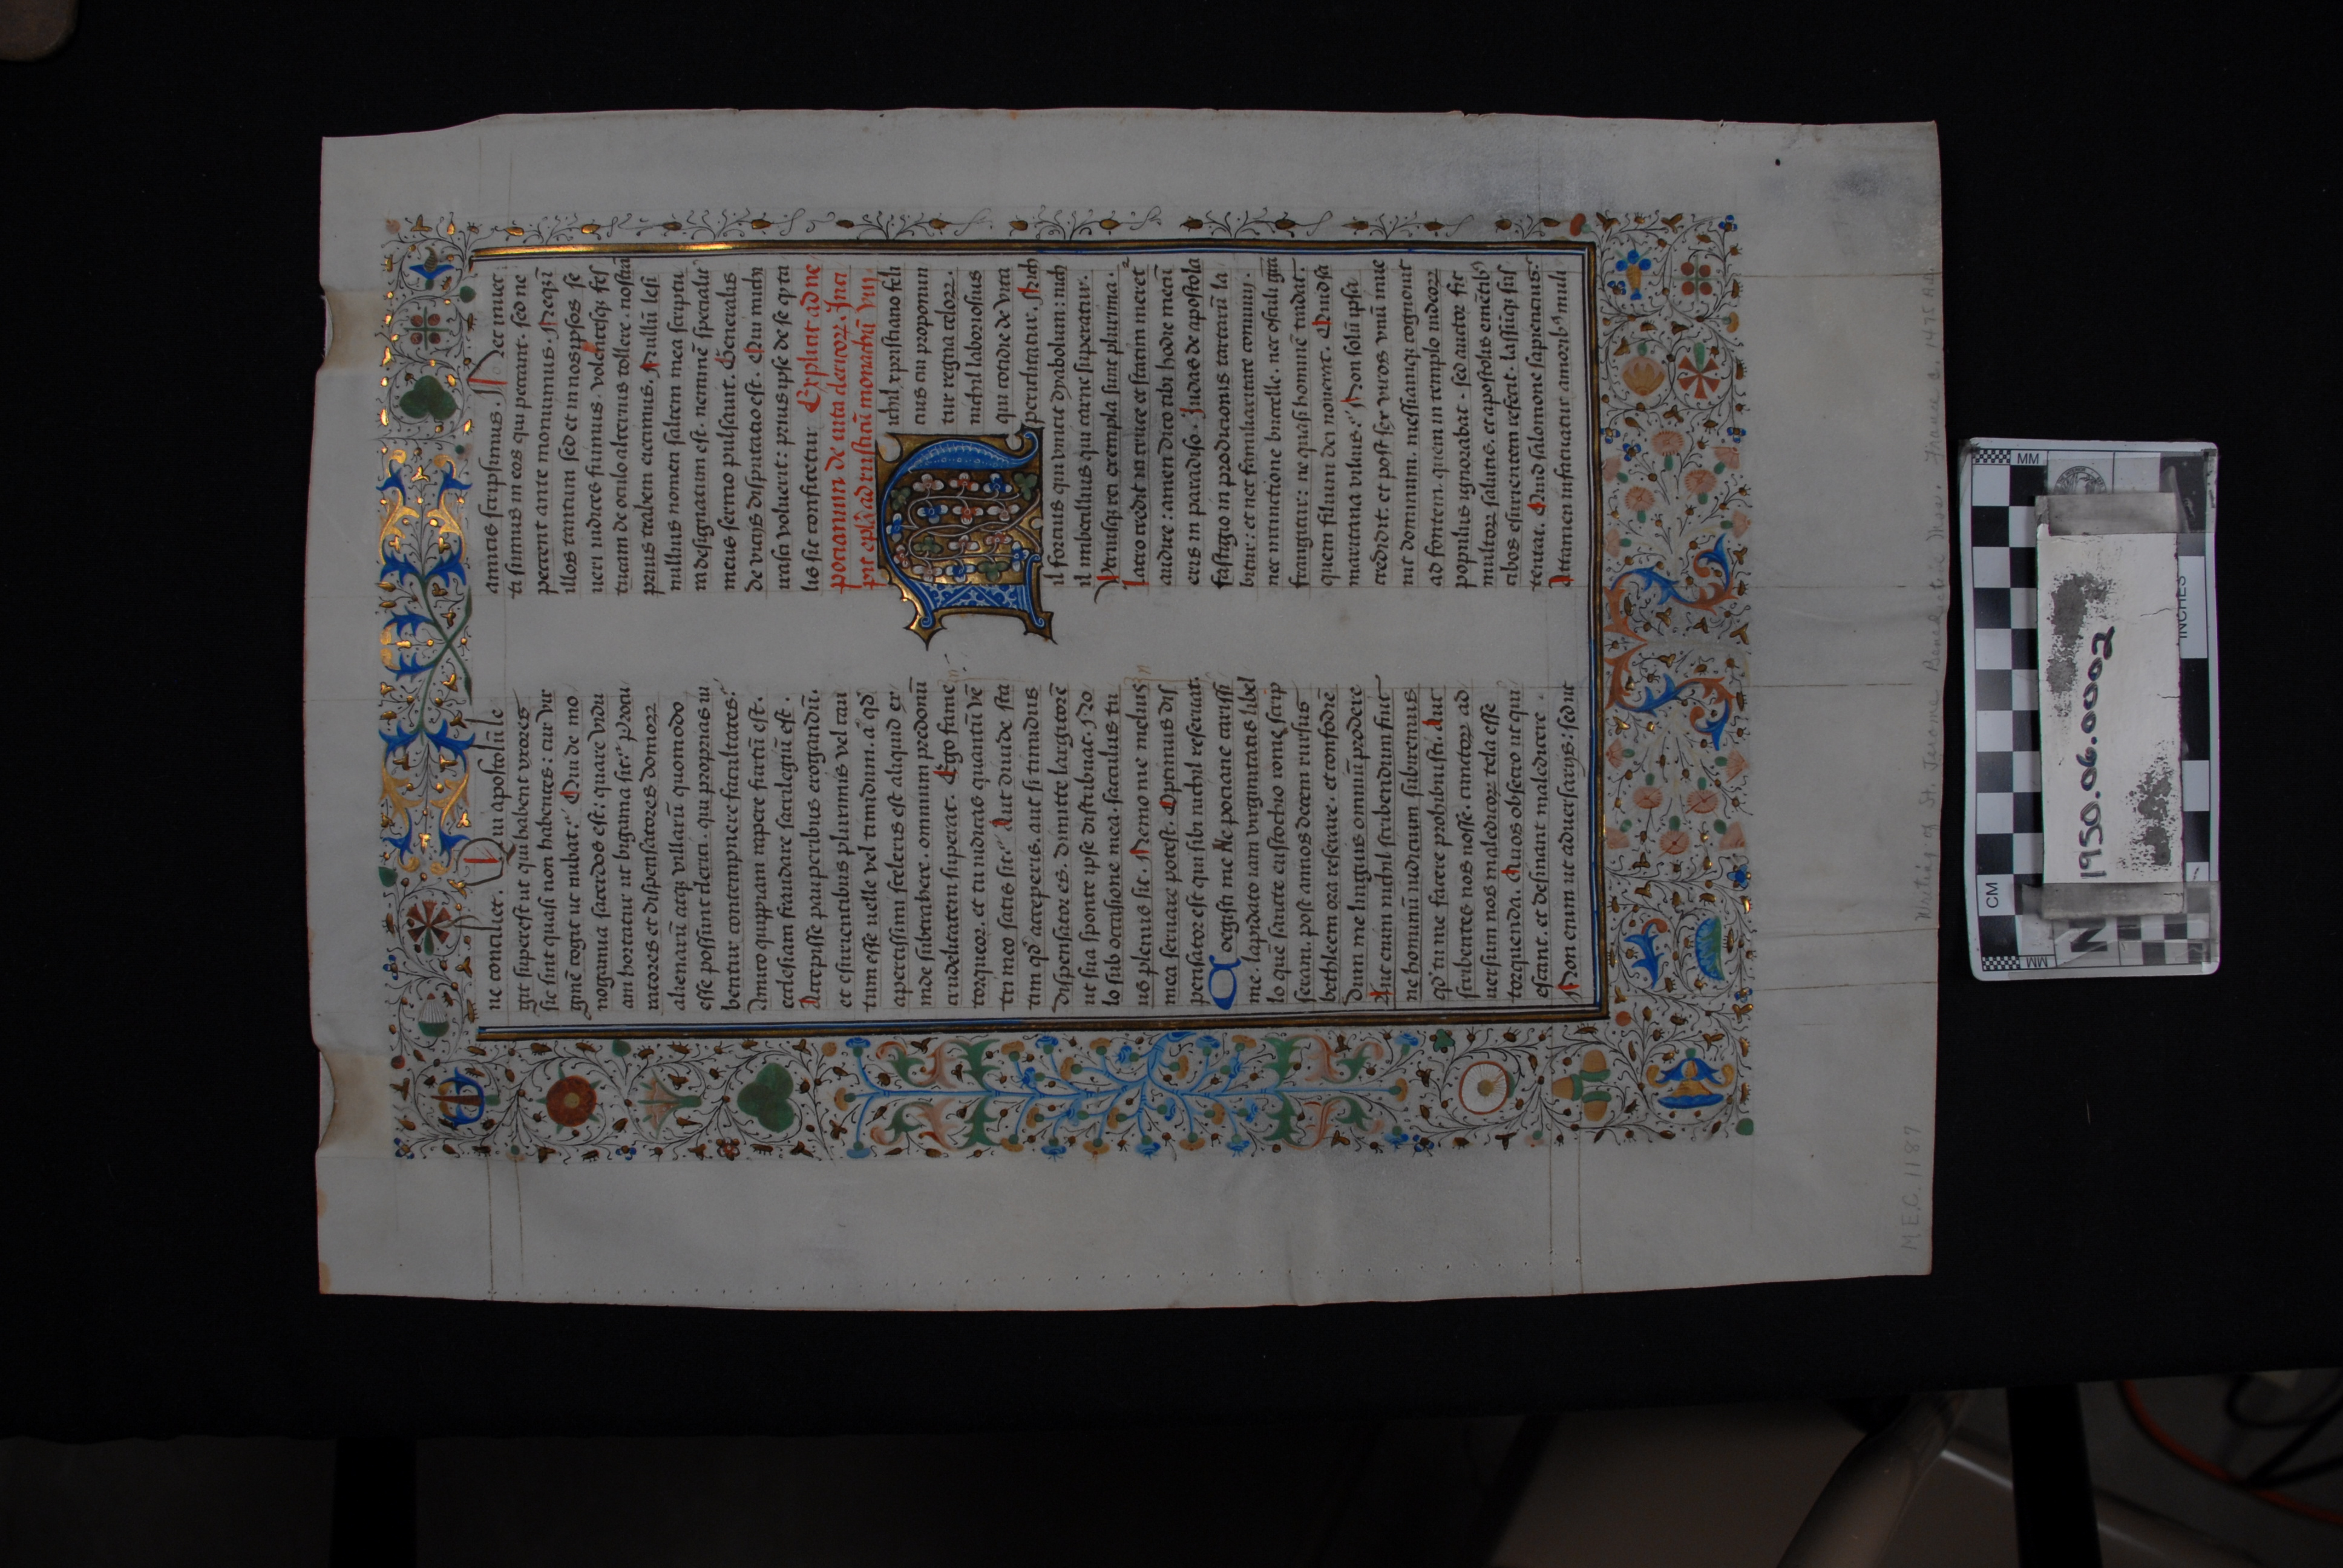 ne conciliet. Qui apostoli
sic sint quasi non habentes: cur vir
ginē cogit ut nubat? Qui de mo
nogamia sacerdos est: quare vidu
am hortatur ut bigama sit? procu
ratores et dispensatores domorꝝ
alienarū atqꝫ villarū quomodo
esse possunt clerici. qui proprias iu
bentur contempnere facultates?
Amico quippiam rapere furtū est.
ecclesiam fraudare sacrilegiū est.
Accepisse pauperibus erogandū.
et esurientibus plurimis vel cau
tum esse uelle vel timidum. a qd
apertissimi sceleris est aliquid ex
inde subtrahere. omnium predonū
crudelitatem superat. Ego fame
torqueor. et tu iudicas quantū vē
tri meo satis sit? Aut diuide sta
tim qd acceperis. aut si timidus
dispensator es. dimitte largitorē
ut sua sponte ipse distribuat. No
lo sub occasione mea. sacculus tu
us plenus sit. Nemo me melius
mea seruare potest. Optimus dis
pensator est qui sibi nichil reseruat.
Coegisti me Nepociane carissi
me. lapidato iam virginitatis libel
lo quē sancte eustochio rome scrip
seram. post annos decem rursus
bethleem ora reserare. et confodiē
dum me linguis omniū prodere
Aut enim nichil scribendum fuit
ne hominū iudicium subiremus
qd tu me facere prohibuisti. Aut
scribentes nos nosse. cunctorꝝ ad
uersum nos maledicorꝝ tela esse
torquenda. Quos obsecro ut qui
escant. et desinant maledicere.
Non enim ut aduersarijs: sed ut
amicis scripsimus. Nec inuec
ti sumus in eos qui peccant. sed ne
peccent ante monuimus. Neqꝫ ī
illos tantum sed et in nos ipsos se
ueri iudices fuimus. volentesqꝫ fes
tucam de oculo alterius tollere. nostrā
prius trabem eiecimus. Nullū lesi
nullius nomen saltem mea scriptu
ra designatum est. neminē specialit
meus sermo pulsauit. Generalis
de vicijs disputatio est. Qui michi
irasci voluerit: prius ipse de se qꝫ ta
lis sit confitetur Explicit ad ne
pocianum de uita clericorꝝ. Inci
pit eplā ad rusticū monachū viij
Nichil xpristiano feli
cius cui promittun
tur regna celorꝝ.
nichil laboriosius
qui cotidie de vita
periclitatur. Nich
il forcius qui vincit dyabolum: nich
il imbecillius qui carne superatur.
Vtriusqꝫ rei exempla sunt plurima.
Latro credit in cruce et statim meret
audire: amen dico tibi hodie mecū
eris in paradiso. Iudas de apostola
tus fastigio in prodicionis tartarū la
bitur: et nec familiaritate conuiuij.
nec intinctione buccelle. nec osculi gra
frangitur: ne quasi hominē tradat.
quem filium dei nouerat. Quid sa
maritana vilius? Non solū ipsa
credidit. et post sex viros vnū inue
nit dominum. messiamqꝫ cognouit
ad fontem. quem in templo iudeorꝝ
populus ignorabat. sed auctor fit
multorꝝ salutis. et apostolis emētibꝰ
cibos esurientem reficit. lassūqꝫ sus
tentat. Quid salomone sapiencius?
Attamen infatuatur amoribꝰ muli
Writing of St. Jerome Benedictine Mss. France c. 1475 A.D.
M.E.C. 1187
1950.06.0002
CM
MM
MM
INCHES
N